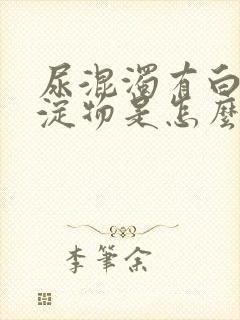 尿混濁有白
淀物是怎麼
李筆余